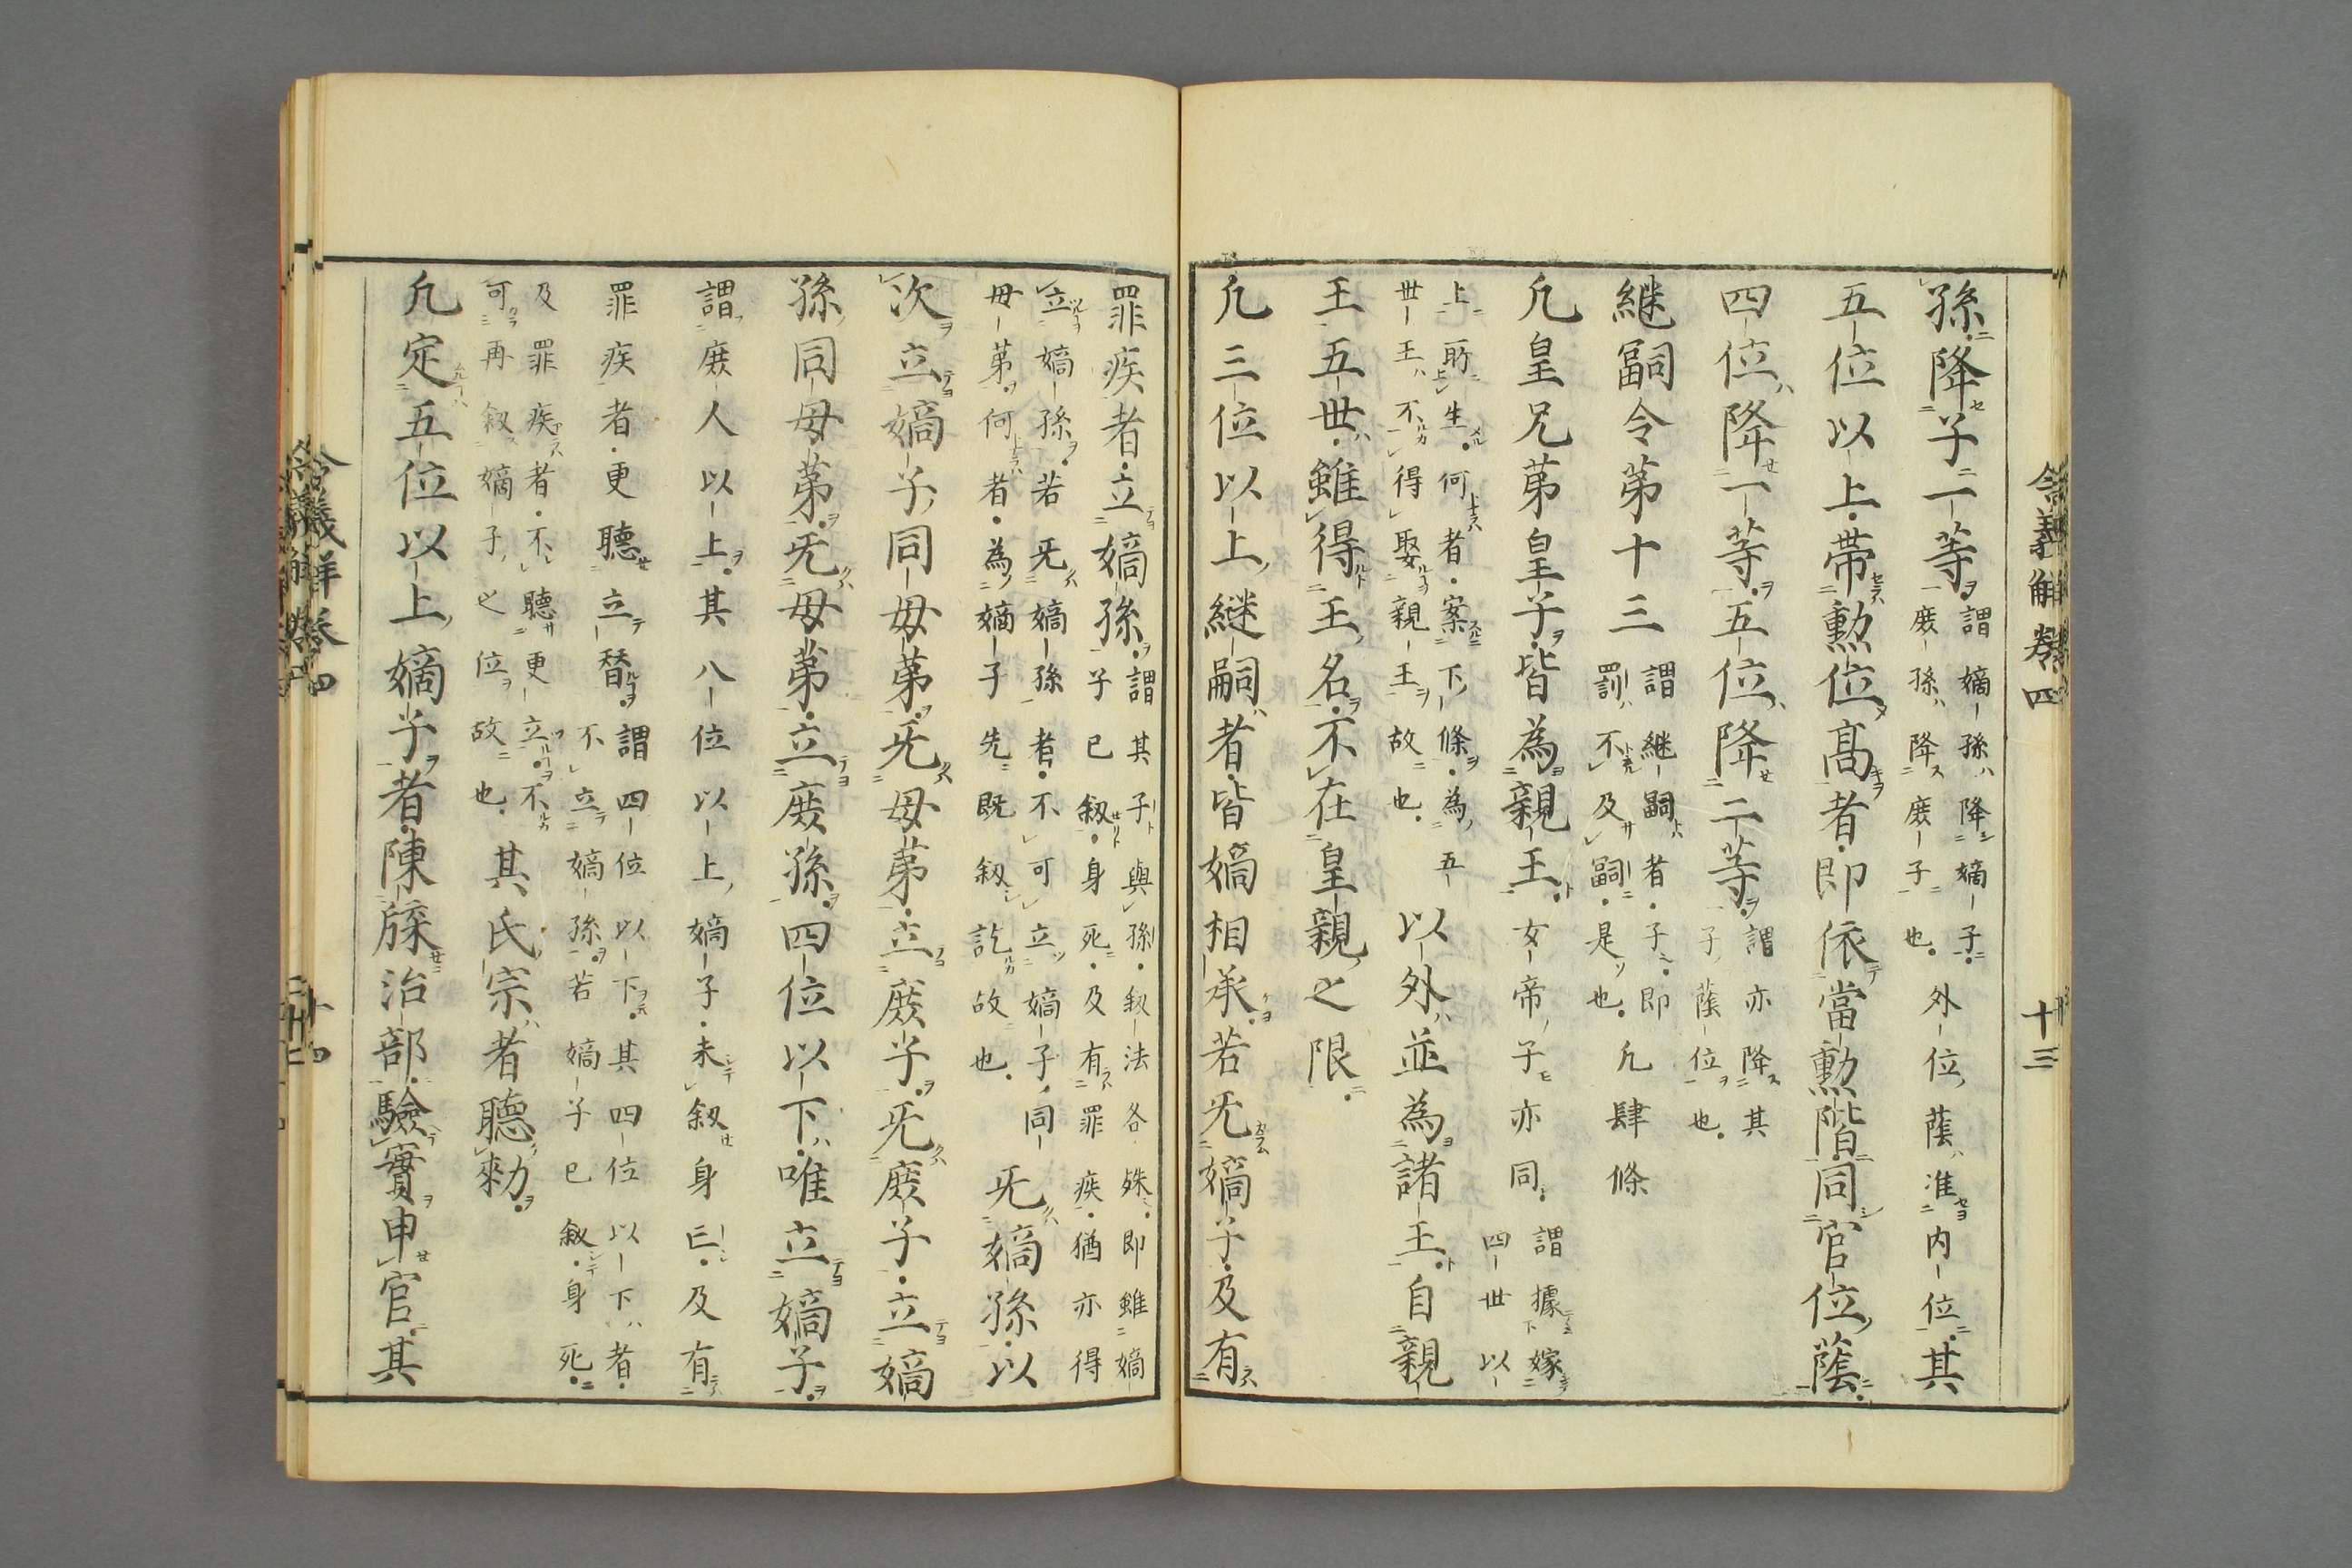 令義解卷四 十三
孫降子一等謂嫡孫降嫡子一庻孫降庻子也外位蔭准内位其
五位以上帶勲位髙者即依當勲階同官位蔭
四位降一等五位降二等謂亦降其子蔭位也
継嗣令苐十三謂継嗣者子即罰不及嗣是也凢肆條
凢皇兄苐皇子皆為親王女帝子亦同謂據嫁四世以
上所生何者案下條為五世王不得娶親王故也以外並為諸王自親
王五世雖得王名不在皇親之限
凢三位以上継嗣者皆嫡相承若旡嫡子及有
罪疾者立嫡孫謂其子與孫叙法各殊即雖嫡子已叙身死及有罪疾猶亦得
立嫡孫若旡嫡孫者不可立嫡子同母苐何者為嫡子先既叙訖故也旡嫡孫以
次立嫡子同母苐旡母苐立庻子旡庻子立嫡
孫同母苐旡母苐立庻孫四位以下唯立嫡子
謂庻人以上其八位以上嫡子未叙身亡及有
罪疾者更聽立替謂四位以下其四位以下者不立嫡孫若嫡子已叙身死
及罪疾者不聽更立不可再叙嫡子之位故也其氏宗者聽勅
凢定五位以上嫡子者陳牒治部驗實申官其